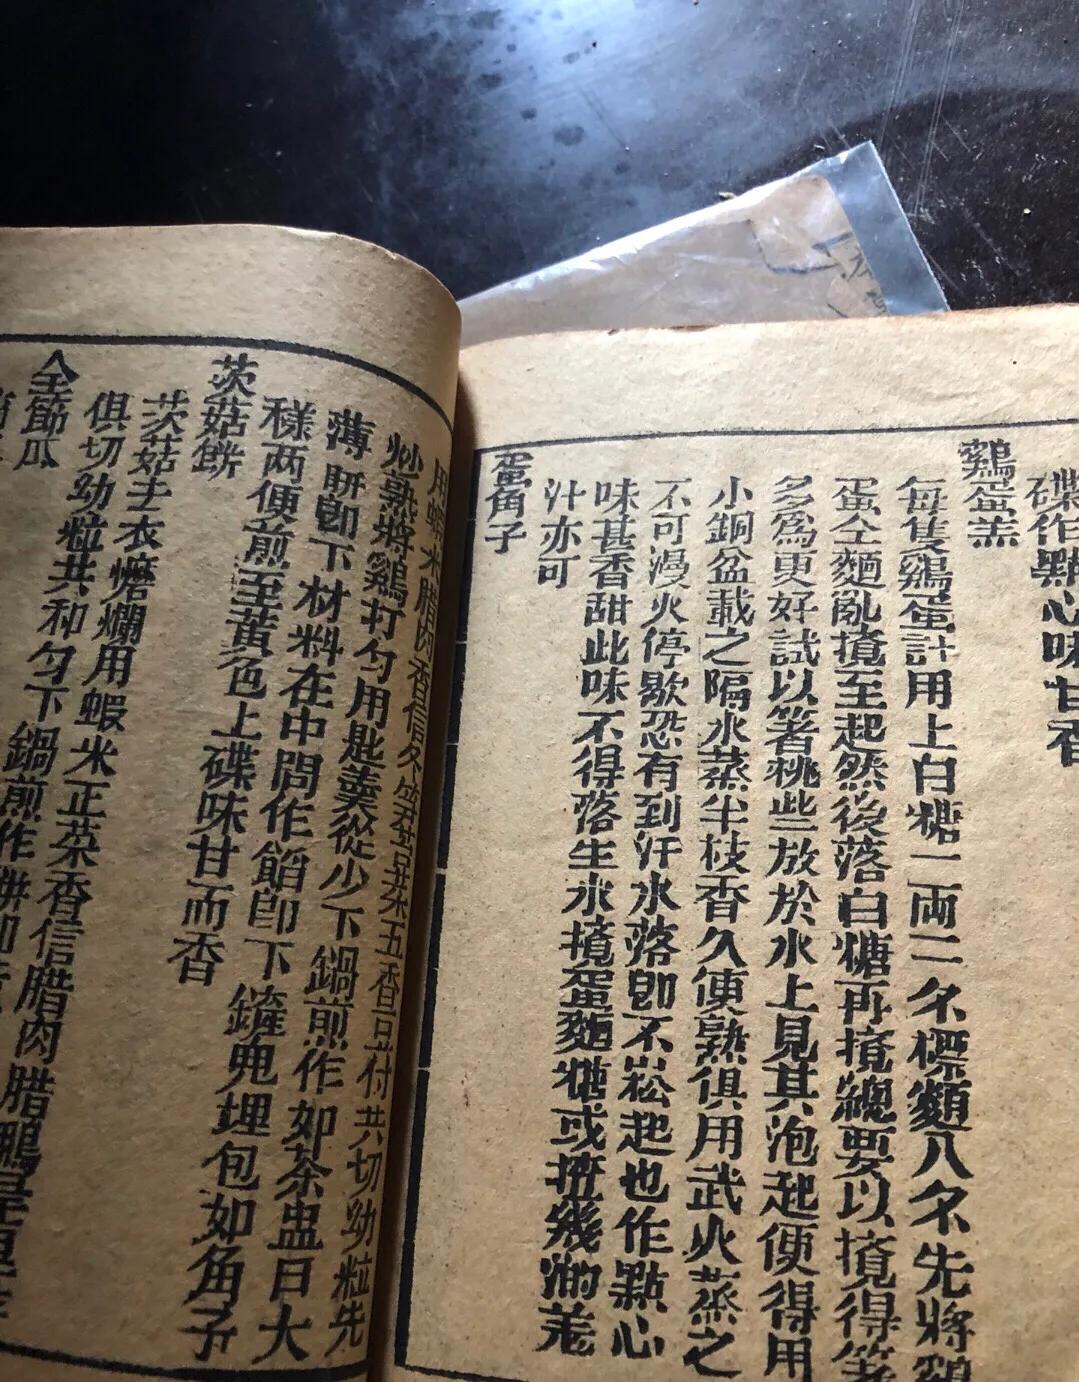 碟作點心味甘香
鷄蛋羔
每隻鷄蛋計用上白糖一両二名標麵八名先將鷄
蛋仝麵亂撓至起然後落白糖再撓總要以撓得
多多為更好試以箸桃些放於水上見其泡起便得用
小銅盆載之隔水蒸半枝香久便熟俱用武火蒸之
不可漫火停歇恐有到汗水落卽不崧起也作點心
味甚香甜此味不得落生水撓蛋麵糖或 幾 羗
汁亦可
蛋角子
用蝦米腊肉香信冬笋 五香 付共切幼粒先
炒熟將鷄打匀用匙羮從少下鍋煎作如茶盅日大
薄 卽下材料在中間作餡卽下 埋包如角子
樣両便煎至黃色上碟味甘而香
茨菇餅
茨菇去衣 爛用蝦米正菜香信腊肉腊鴨
俱切幼粒共和匀下鍋煎作餅
仝節瓜